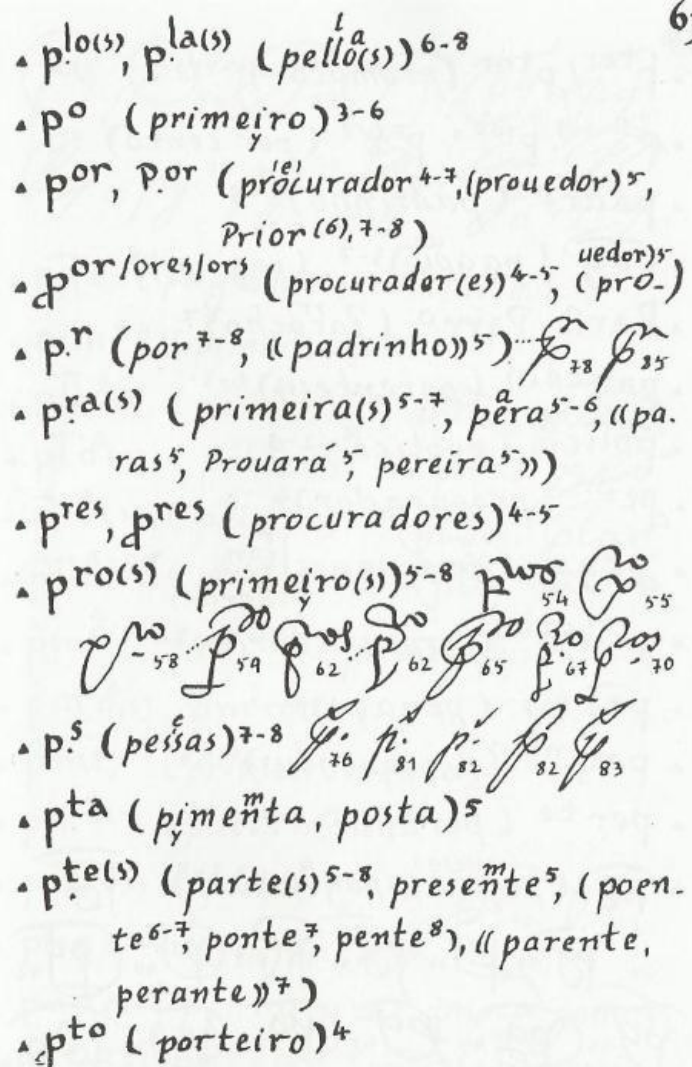 6
▴ p.lo(s), p.la(s) (pello(s))6-8
▴ po (primeiro)3-6
▴ por, P.or (procurador4-7,(prouedor)5,
Prior(6),7-8)
▴ por/ores/ors (procurador(es)4-5, (pro-uedor)5)
▴ p.r (por7-8, ((padrinho))5) 78 85
▴ p.ra(s) (primeira(s)5-7, pera5-6, ((pa.
ras5, Prouará5, pereira5)))
▴ pres, pres (procuradores)4-5
▴ pro(s) (primeiro(s))5-8 54 55
58 59 62 62 65 67 70
▴ p.s (pessas)7-8 76 81 82 82 83
▴ pta (pimenta, posta)5
▴ p.te(s) (parte(s)5-8, presente5, (poen-
te6-7, ponte7, pente8), ((parente,
perante))7)
▴ pto (porteiro)4